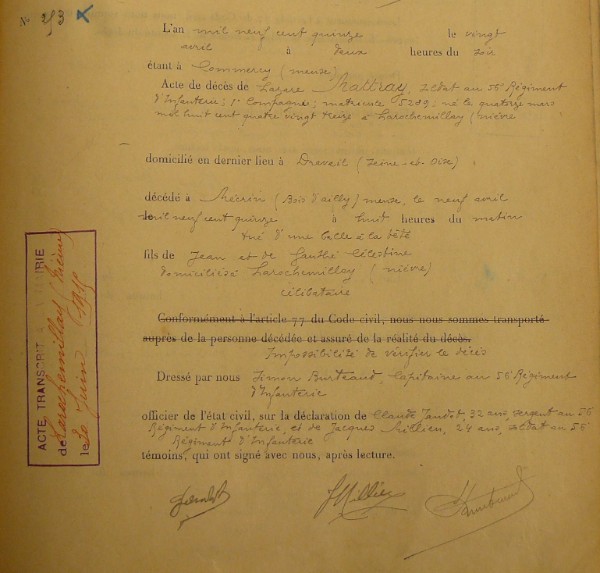 N° 293 X
L'an mil neuf cent quinze le vingt
avril à deux heures du soir
étant à Commercy (meuse)
Acte de décès de Lazare Rattray, soldat au 56 Régiment
d'Infanterie; 1e Compagnie; matricule 5289; né le quatorze mars
mil huit cent quatre vingt treize à Larochemillay (nièvre
domicilié en dernier lieu à Draveil (Seine-et-Oise)
décédé à (Bois d'ailly) meuse, le neuf avril
mil neuf cent quinze à huit heures du matin
tué d'une balle à la tête
fils de Jean et de Gauthé Célestine
domiciliés à Larochemillay (nièvre)
célibataire
Conformément à l'article 77 du Code civil, nous nous sommes transporté
auprès de la personne décédée et assuré de la réalité du décès.
Impossibilité de vérifier le décès
Dressé par nous Simon Capitaine au 56 Régiment
d'Infanterie
officier de l'état civil, sur la déclaration de Claude 32 ans, sergent au 56
Régiment d'Infanterie, et de Jacques Millien, 24 ans, soldat au 56
Régiment d'Infanterie
témoins, qui ont signé avec nous, après lecture.
JMillien
ACTE TRANSCRIT A MAIRIE
de Larochemillay (Nièvre)
le Juin 1915